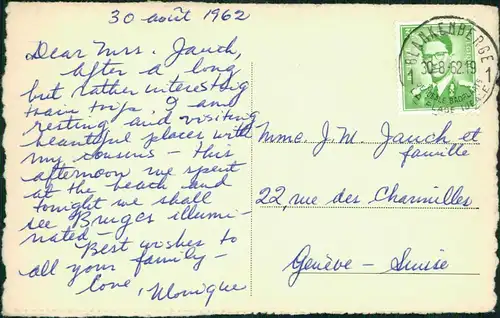 30 août 1962
Dear Mrs. Jauch,
After a long
but rather interesting
train trip, I am
resting and visiting
beautiful places with
my cousins - this
afternoon we spent
at the beach and
tonight we shall
see Bruges illumi-
nated -
Best wishes to
all your family -
love, Monique
BLANKENBERGE
1 30-8-62 19 1
Mme. J. M. Jauch et
famille
22, rue des Charmilles
Genève - Suisse